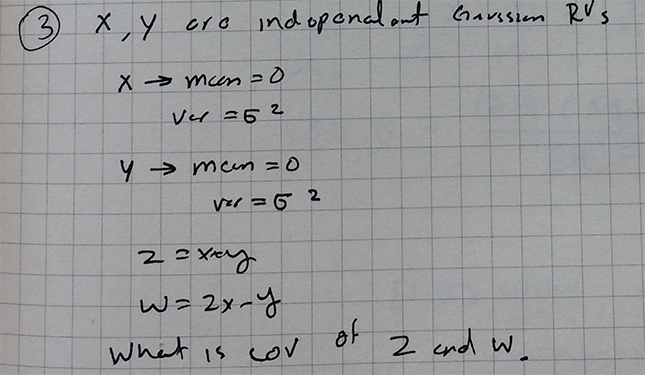 ③ X, Y are independent Gaussian RVs
X → mean = 0
var = σ²
Y → mean = 0
var = σ²
Z = x+y
W = 2x - y
What is cov of Z and W.